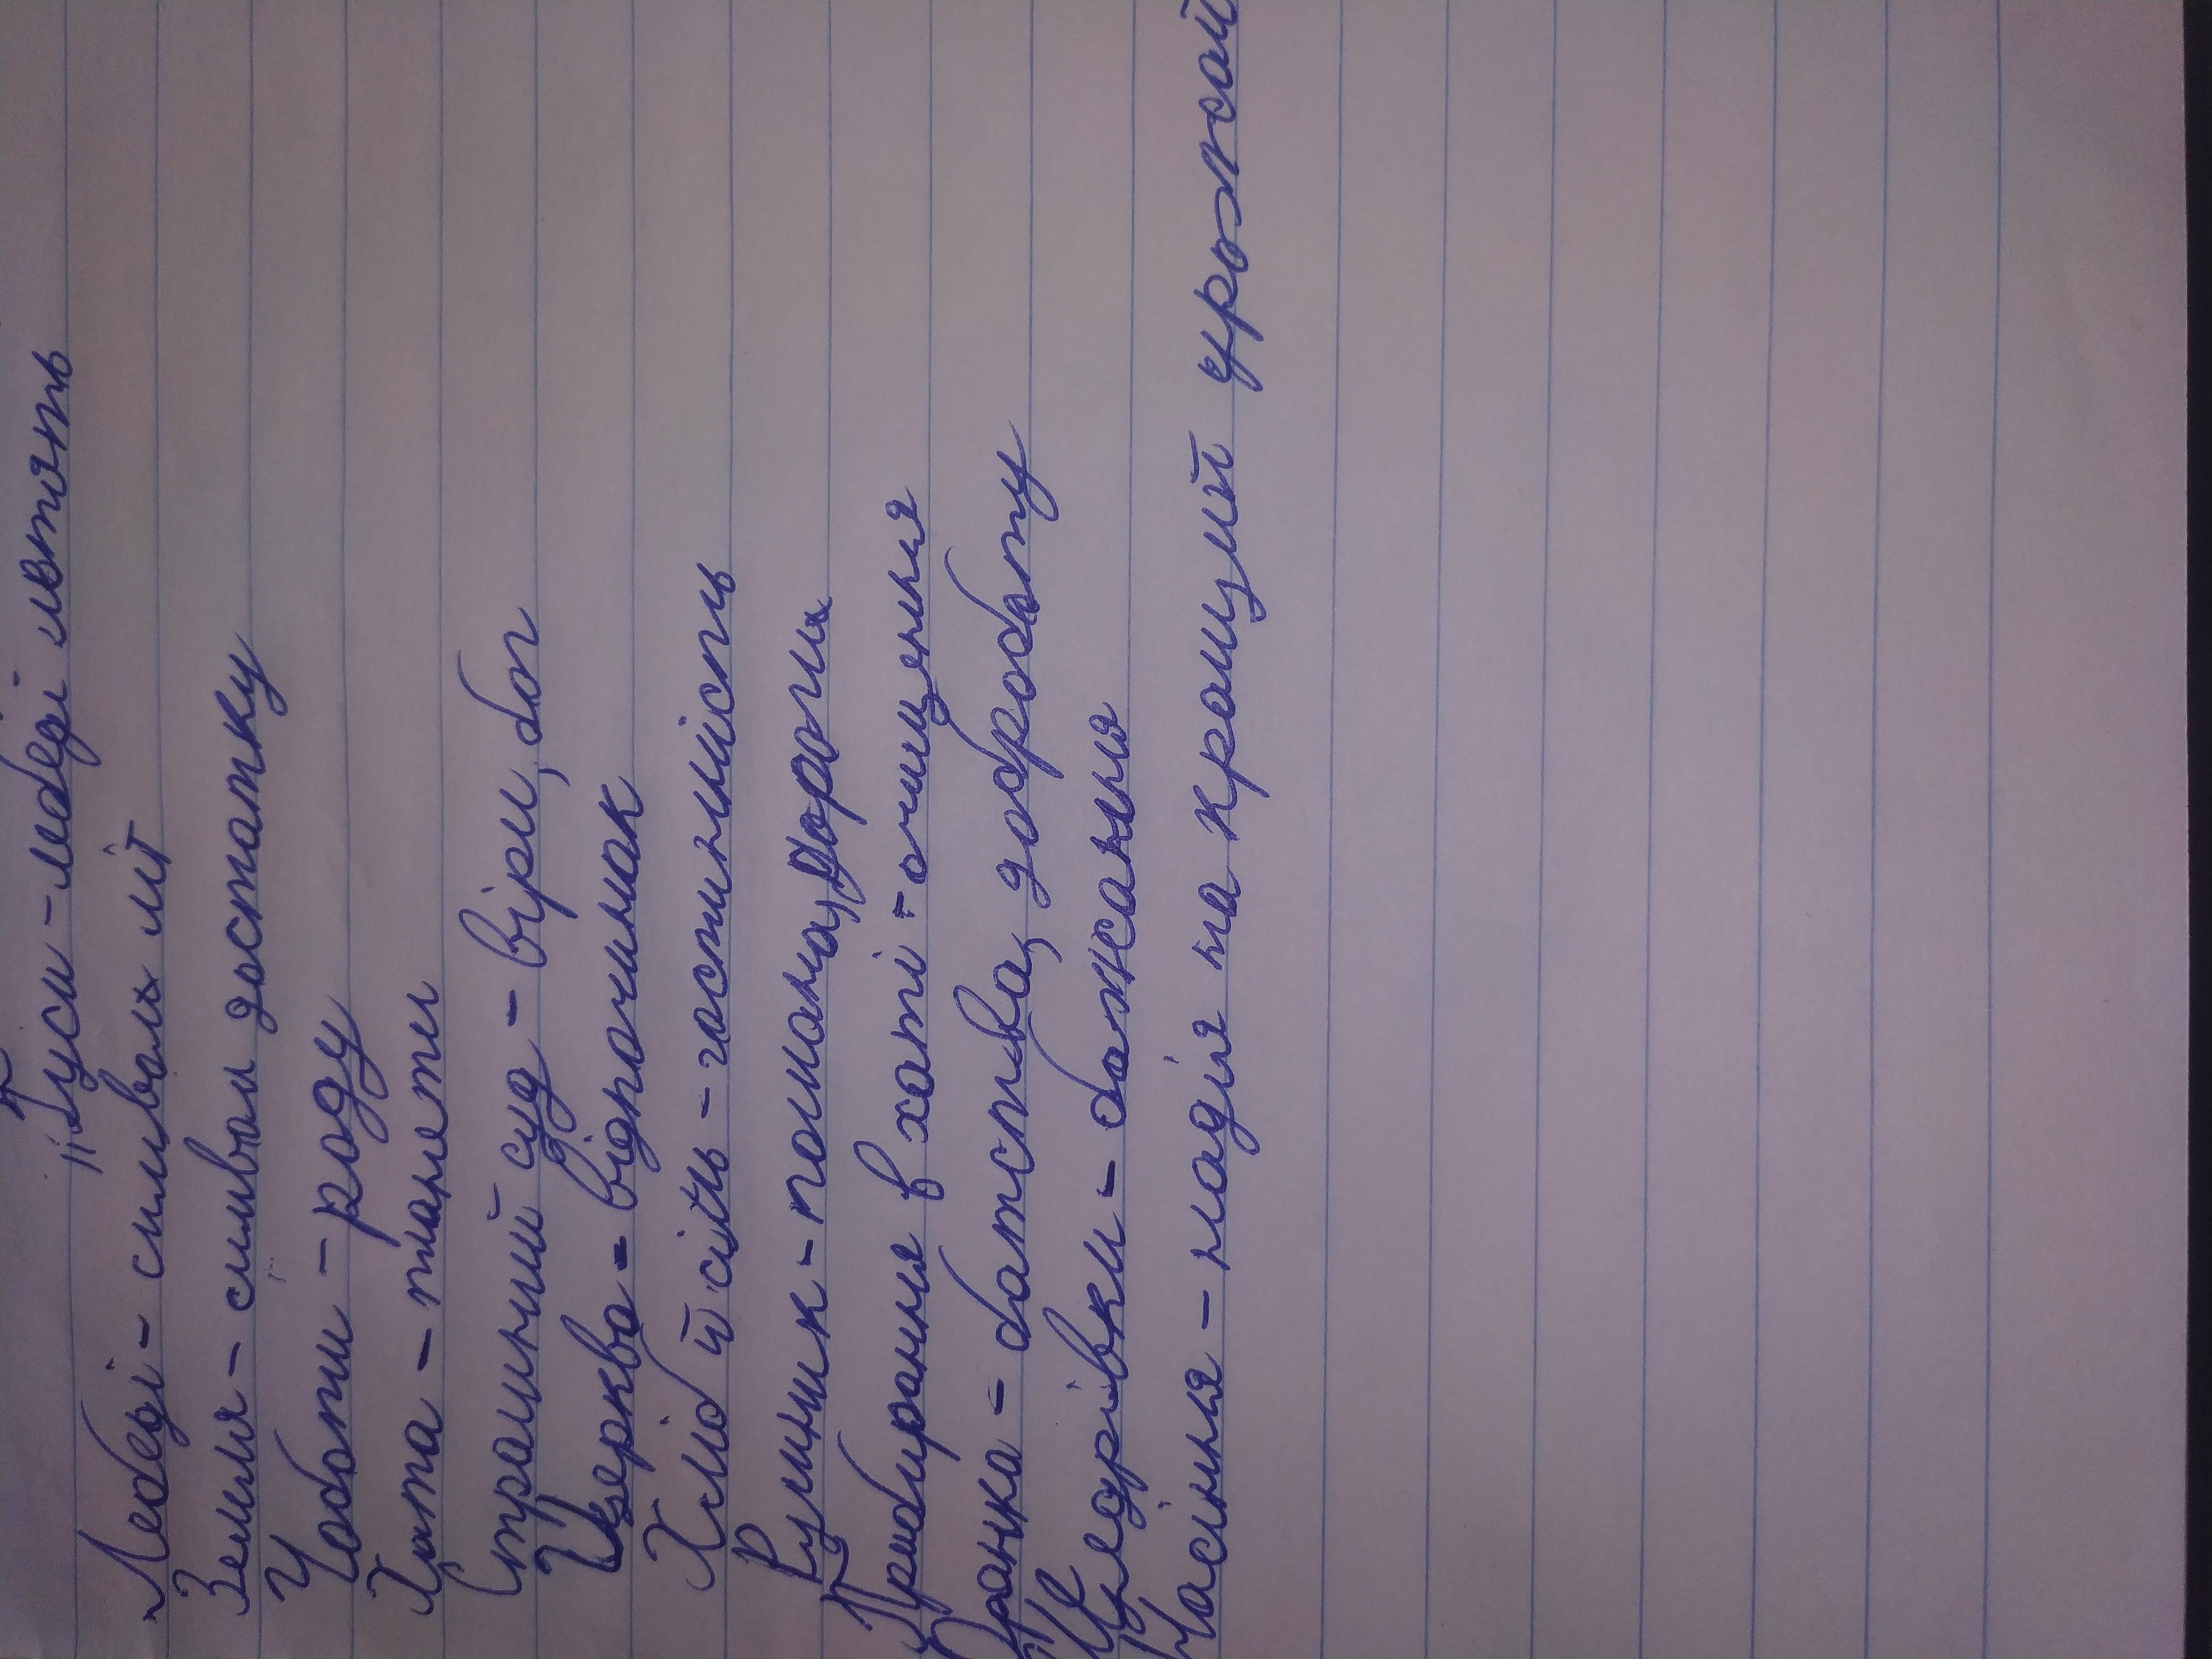 "Гуси - лебеді летять
Лебеді - символ літ
Земля - символ достатку
Чоботи - роду
Хата - планети
Страшний суд - віри, бог
Церква - відпочинок
Хліб й сіль - гостинність
Рушник - пошана, дороги
Прибирання в хаті - очищення
Дранка - батьства, доброботу
Щедрівки - бажання
Насіння - надія на кращий урожай